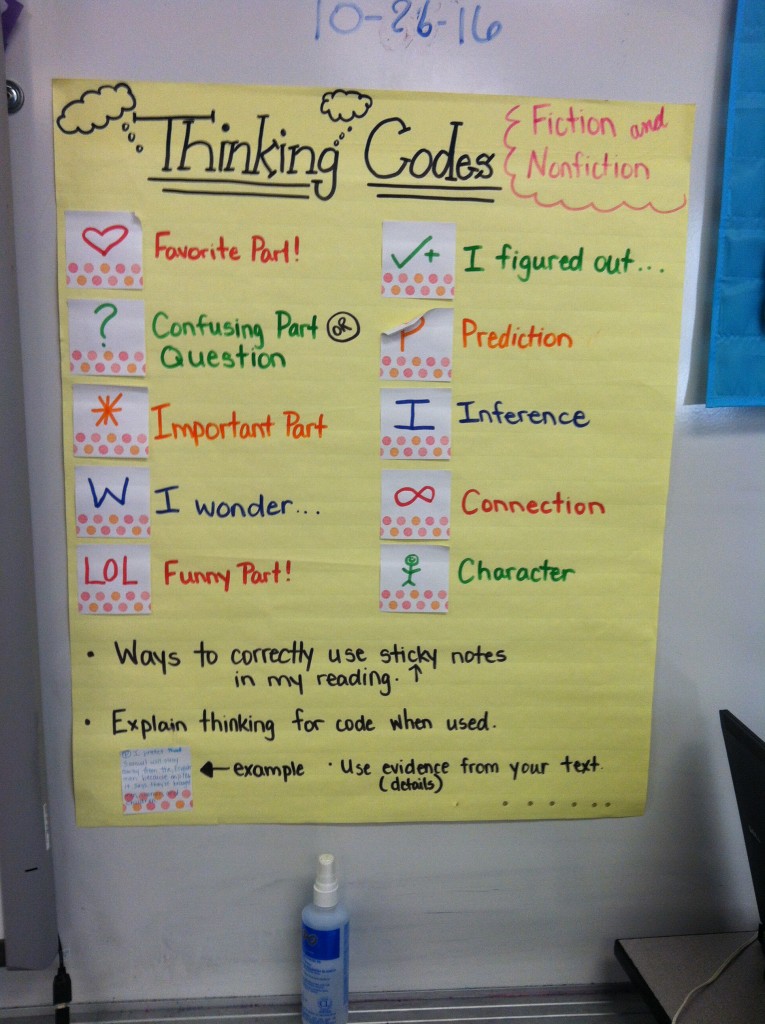 10-26-16
Thinking Codes
Fiction and
Nonfiction
Favorite Part!
? Confusing Part OR
Question
* Important Part
W I wonder...
LOL Funny Part!
✓+ I figured out...
P Prediction
I Inference
∞ Connection
Character
• Ways to correctly use sticky notes
in my reading. ↑
• Explain thinking for code when used.
← example • Use evidence from your text.
(details)
P I predict that
Samuel will stay
away from the
man because